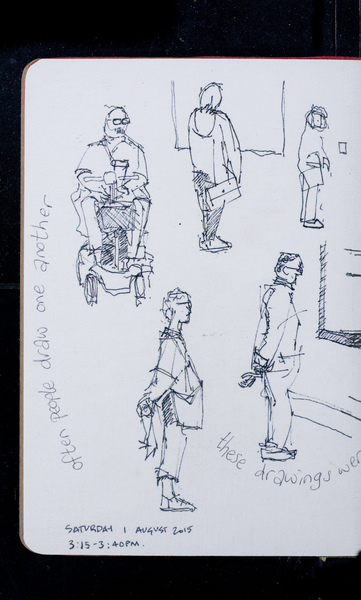 often people draw one another
these drawings wer
SATURDAY 1 AUGUST 2015
3:15-3:40PM.